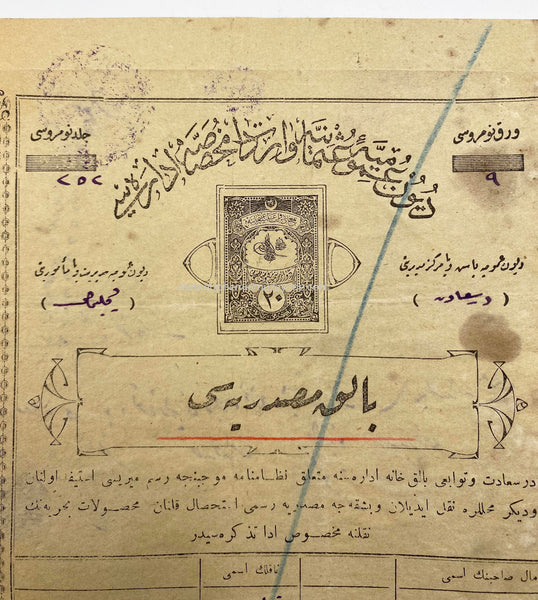 ورق نومروسی
جلد نومروسی
٩
٢٥٢
دیون عمومیهٔ عثمانیه واردات مخصصه اداره سی
دیون عمومیه باش و مرکز مدیریتی
دیون عمومیه مدیریت و یا مأموریتی
( درسعادت )
٢٠
بالق مصدریه سی
درسعادت و توابعی بالق خانه اداره سنه متعلق نظامنامه موجبنجه رسم میریسی استیفا اولنان
و دیگر محللره نقل ایدیلان و بشقه جه مصدریه رسمی استحصال قلنان محصولات بحریه نك
نقلنه مخصوص ادا تذکره سیدر
مال صاحبنك اسمی
ناقلك اسمی